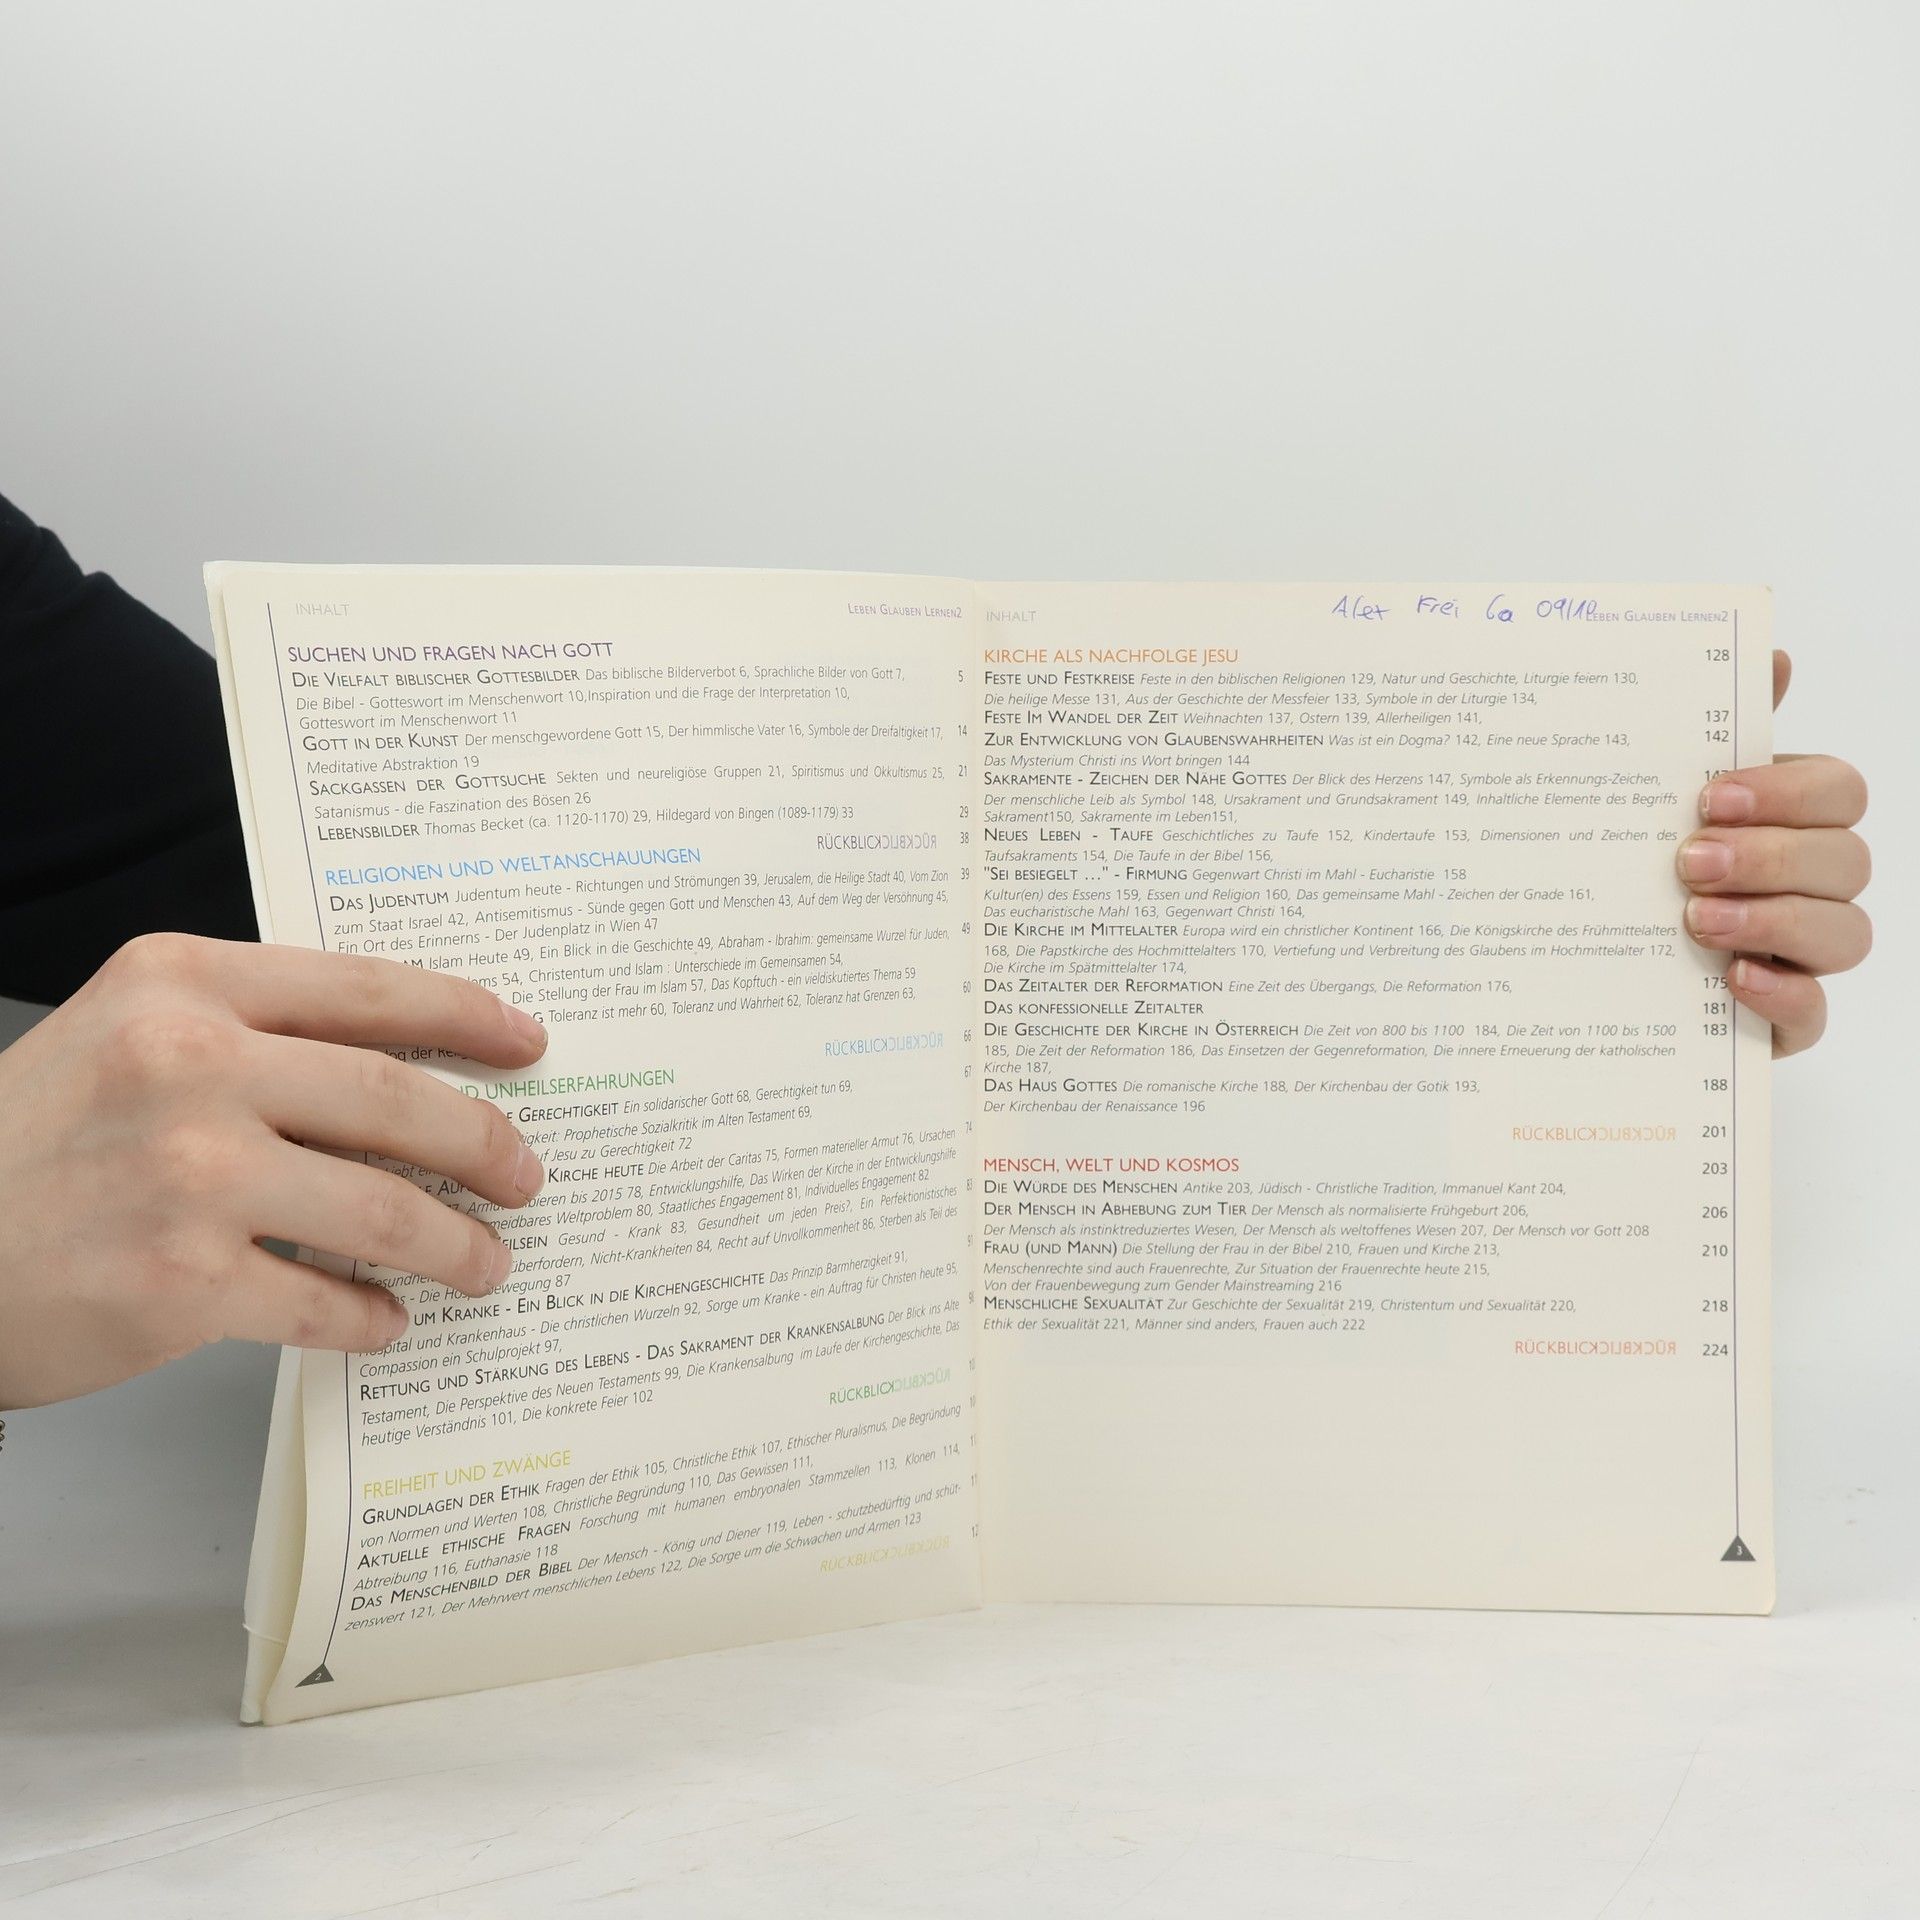 INHALT
LEBEN GLAUBEN LERNEN2
SUCHEN UND FRAGEN NACH GOTT
DIE VIELFALT BIBLISCHER GOTTESBILDER Das biblische Bilderverbot 6, Sprachliche Bilder von Gott 7, 5
Die Bibel - Gotteswort im Menschenwort 10,Inspiration und die Frage der Interpretation 10,
Gotteswort im Menschenwort 11
GOTT IN DER KUNST Der menschgewordene Gott 15, Der himmlische Vater 16, Symbole der Dreifaltigkeit 17, 14
Meditative Abstraktion 19
SACKGASSEN DER GOTTSUCHE Sekten und neureligiöse Gruppen 21, Spiritismus und Okkultismus 25, 21
Satanismus - die Faszination des Bösen 26
LEBENSBILDER Thomas Becket (ca. 1120-1170) 29, Hildegard von Bingen (1089-1179) 33 29
RÜCKBLICK 38
RELIGIONEN UND WELTANSCHAUUNGEN
DAS JUDENTUM Judentum heute - Richtungen und Strömungen 39, Jerusalem, die Heilige Stadt 40, Vom Zion 39
zum Staat Israel 42, Antisemitismus - Sünde gegen Gott und Menschen 43, Auf dem Weg der Versöhnung 45,
Ein Ort des Erinnerns - Der Judenplatz in Wien 47
AM Islam Heute 49, Ein Blick in die Geschichte 49, Abraham - Ibrahim: gemeinsame Wurzel für Juden, 49
ems 54, Christentum und Islam : Unterschiede im Gemeinsamen 54,
Die Stellung der Frau im Islam 57, Das Kopftuch - ein vieldiskutiertes Thema 59
G Toleranz ist mehr 60, Toleranz und Wahrheit 62, Toleranz hat Grenzen 63, 60
og der
RÜCKBLICK 66
D UNHEILSERFAHRUNGEN 67
E GERECHTIGKEIT Ein solidarischer Gott 68, Gerechtigkeit tun 69,
igkeit: Prophetische Sozialkritik im Alten Testament 69,
uf Jesu zu Gerechtigkeit 72
KIRCHE HEUTE Die Arbeit der Caritas 75, Formen materieller Armut 76, Ursachen 74
bieren bis 2015 78, Entwicklungshilfe, Das Wirken der Kirche in der Entwicklungshilfe
meidbares Weltproblem 80, Staatliches Engagement 81, Individuelles Engagement 82
EILSEIN Gesund - Krank 83, Gesundheit um jeden Preis?, Ein Perfektionistisches
überfordern, Nicht-Krankheiten 84, Recht auf Unvollkommenheit 86, Sterben als Teil des
s - Die ewegung 87
UM KRANKE - EIN BLICK IN DIE KIRCHENGESCHICHTE Das Prinzip Barmherzigkeit 91,
Hospital und Krankenhaus - Die christlichen Wurzeln 92, Sorge um Kranke - ein Auftrag für Christen heute 95,
Compassion ein Schulprojekt 97,
RETTUNG UND STÄRKUNG DES LEBENS - DAS SAKRAMENT DER KRANKENSALBUNG Der Blick ins Alte
Testament, Die Perspektive des Neuen Testaments 99, Die Krankensalbung im Laufe der Kirchengeschichte, Das
heutige Verständnis 101, Die konkrete Feier 102
RÜCKBLICK
FREIHEIT UND ZWÄNGE
GRUNDLAGEN DER ETHIK Fragen der Ethik 105, Christliche Ethik 107, Ethischer Pluralismus, Die Begründung
von Normen und Werten 108, Christliche Begründung 110, Das Gewissen 111,
AKTUELLE ETHISCHE FRAGEN Forschung mit humanen embryonalen Stammzellen 113, Klonen 114,
Abtreibung 116, Euthanasie 118
DAS MENSCHENBILD DER BIBEL Der Mensch - König und Diener 119, Leben - schutzbedürftig und schüt-
zenswert 121, Der Mehrwert menschlichen Lebens 122, Die Sorge um die Schwachen und Armen 123
RÜCKBLICK
2
INHALT
Alex Frei 6a 09/10
LEBEN GLAUBEN LERNEN2
KIRCHE ALS NACHFOLGE JESU 128
FESTE UND FESTKREISE Feste in den biblischen Religionen 129, Natur und Geschichte, Liturgie feiern 130,
Die heilige Messe 131, Aus der Geschichte der Messfeier 133, Symbole in der Liturgie 134,
FESTE IM WANDEL DER ZEIT Weihnachten 137, Ostern 139, Allerheiligen 141, 137
ZUR ENTWICKLUNG VON GLAUBENSWAHRHEITEN Was ist ein Dogma? 142, Eine neue Sprache 143, 142
Das Mysterium Christi ins Wort bringen 144
SAKRAMENTE - ZEICHEN DER NÄHE GOTTES Der Blick des Herzens 147, Symbole als Erkennungs-Zeichen,
Der menschliche Leib als Symbol 148, Ursakrament und Grundsakrament 149, Inhaltliche Elemente des Begriffs
Sakrament150, Sakramente im Leben151,
NEUES LEBEN - TAUFE Geschichtliches zu Taufe 152, Kindertaufe 153, Dimensionen und Zeichen des
Taufsakraments 154, Die Taufe in der Bibel 156,
"SEI BESIEGELT ..." - FIRMUNG Gegenwart Christi im Mahl - Eucharistie 158
Kultur(en) des Essens 159, Essen und Religion 160, Das gemeinsame Mahl - Zeichen der Gnade 161,
Das eucharistische Mahl 163, Gegenwart Christi 164,
DIE KIRCHE IM MITTELALTER Europa wird ein christlicher Kontinent 166, Die Königskirche des Frühmittelalters
168, Die Papstkirche des Hochmittelalters 170, Vertiefung und Verbreitung des Glaubens im Hochmittelalter 172,
Die Kirche im Spätmittelalter 174,
DAS ZEITALTER DER REFORMATION Eine Zeit des Übergangs, Die Reformation 176, 175
DAS KONFESSIONELLE ZEITALTER 181
DIE GESCHICHTE DER KIRCHE IN ÖSTERREICH Die Zeit von 800 bis 1100 184, Die Zeit von 1100 bis 1500 183
185, Die Zeit der Reformation 186, Das Einsetzen der Gegenreformation, Die innere Erneuerung der katholischen
Kirche 187,
DAS HAUS GOTTES Die romanische Kirche 188, Der Kirchenbau der Gotik 193, 188
Der Kirchenbau der Renaissance 196
RÜCKBLICK 201
MENSCH, WELT UND KOSMOS 203
DIE WÜRDE DES MENSCHEN Antike 203, Jüdisch - Christliche Tradition, Immanuel Kant 204,
DER MENSCH IN ABHEBUNG ZUM TIER Der Mensch als normalisierte Frühgeburt 206, 206
Der Mensch als instinktreduziertes Wesen, Der Mensch als weltoffenes Wesen 207, Der Mensch vor Gott 208
FRAU (UND MANN) Die Stellung der Frau in der Bibel 210, Frauen und Kirche 213, 210
Menschenrechte sind auch Frauenrechte, Zur Situation der Frauenrechte heute 215,
Von der Frauenbewegung zum Gender Mainstreaming 216
MENSCHLICHE SEXUALITÄT Zur Geschichte der Sexualität 219, Christentum und Sexualität 220, 218
Ethik der Sexualität 221, Männer sind anders, Frauen auch 222
RÜCKBLICK 224
3